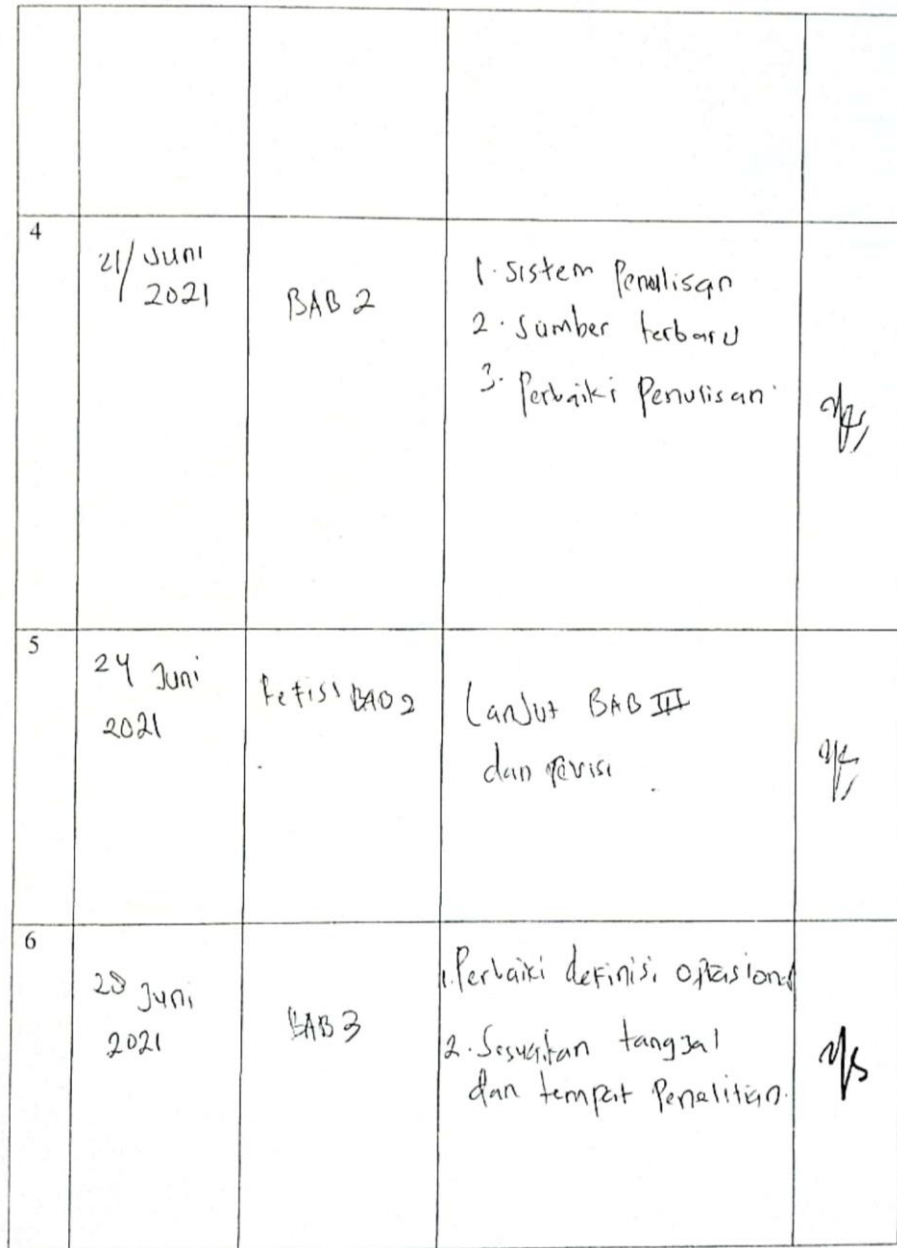 4
21/ Juni
2021
BAB 2
1. Sistem Penulisan
2. Sumber terbaru
3. Perbaiki Penulisan
5
24 Juni
2021
Refisi BAB 2
Lanjut BAB III
dan revisi
6
28 Juni
2021
BAB 3
1. Perbaiki definisi
2. Sesuaikan tanggal
dan tempat Penelitian.